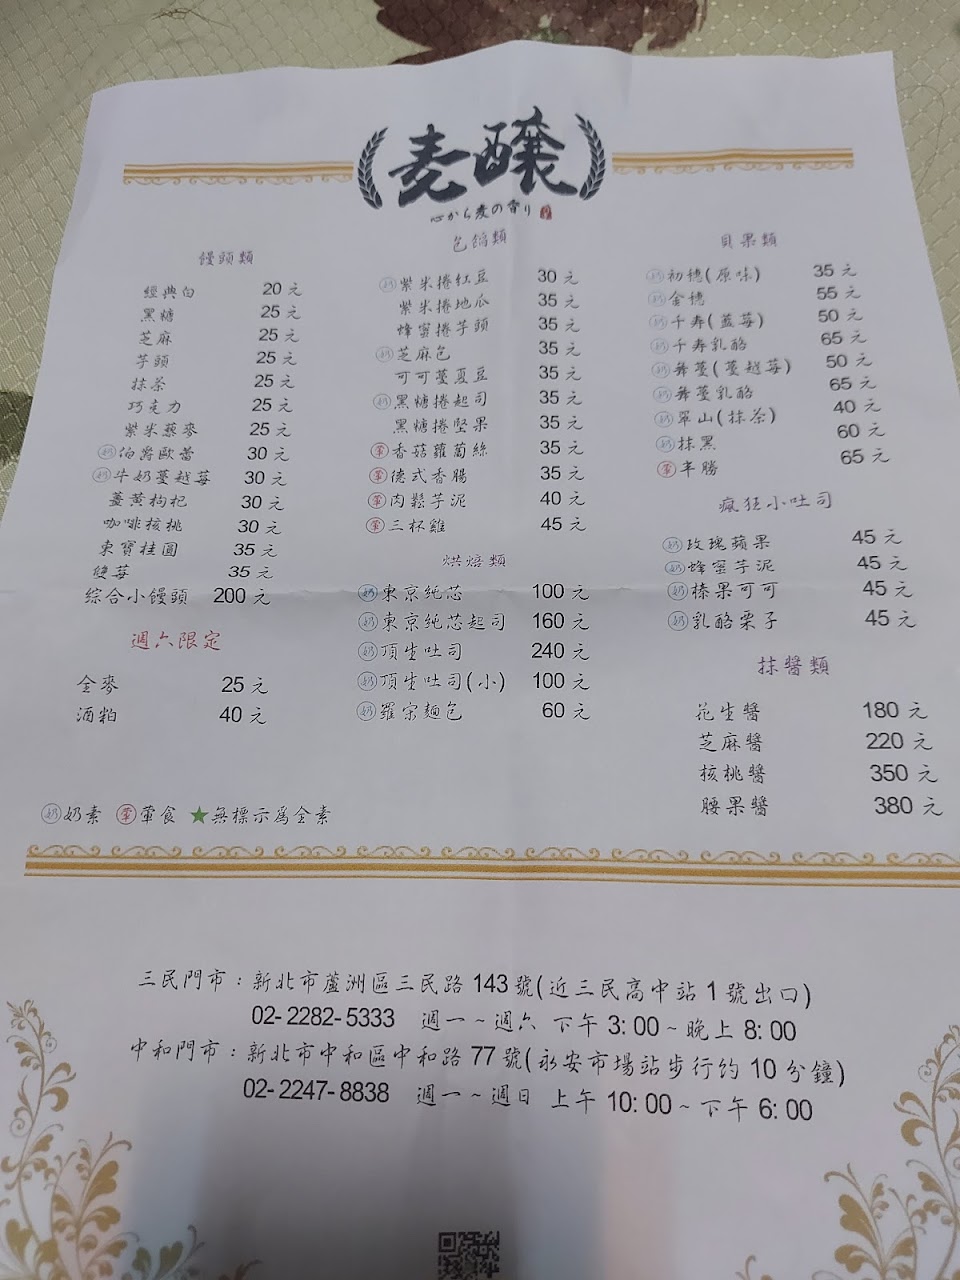 麦釀
心から麦の香り
饅頭類
經典白 20 元
黑糖 25 元
芝麻 25 元
芋頭 25 元
抹茶 25 元
巧克力 25 元
紫米藜麥 25 元
奶 伯爵歐蕾 30 元
奶 牛奶蔓越莓 30 元
薑黃枸杞 30 元
咖啡核桃 30 元
東寶桂圓 35 元
雙莓 35 元
綜合小饅頭 200 元
週六限定
全麥 25 元
酒粕 40 元
包餡類
奶 紫米捲紅豆 30 元
紫米捲地瓜 35 元
蜂蜜捲芋頭 35 元
奶 芝麻包 35 元
可可蔓夏豆 35 元
奶 黑糖捲起司 35 元
黑糖捲堅果 35 元
葷 香菇蘿蔔絲 35 元
葷 德式香腸 35 元
葷 肉鬆芋泥 40 元
葷 三杯雞 45 元
烘焙類
奶 東京純芯 100 元
奶 東京純芯起司 160 元
奶 頂生吐司 240 元
奶 頂生吐司(小) 100 元
奶 羅宋麵包 60 元
貝果類
奶 初穗(原味) 35 元
奶 金穗 55 元
奶 千寿(藍莓) 50 元
奶 千寿乳酪 65 元
奶 舞蔓(蔓越莓) 50 元
奶 舞蔓乳酪 65 元
奶 翠山(抹茶) 40 元
奶 抹黑 60 元
葷 丰勝 65 元
瘋狂小吐司
奶 玫瑰蘋果 45 元
奶 蜂蜜芋泥 45 元
奶 榛果可可 45 元
奶 乳酪栗子 45 元
抹醬類
花生醬 180 元
芝麻醬 220 元
核桃醬 350 元
腰果醬 380 元
奶 奶素 葷 葷食 ★無標示為全素
三民門市：新北市蘆洲區三民路 143 號(近三民高中站 1 號出口)
02-2282-5333 週一~週六 下午 3:00~晚上 8:00
中和門市：新北市中和區中和路 77 號(永安市場站步行約 10 分鐘)
02-2247-8838 週一~週日 上午 10:00~下午 6:00